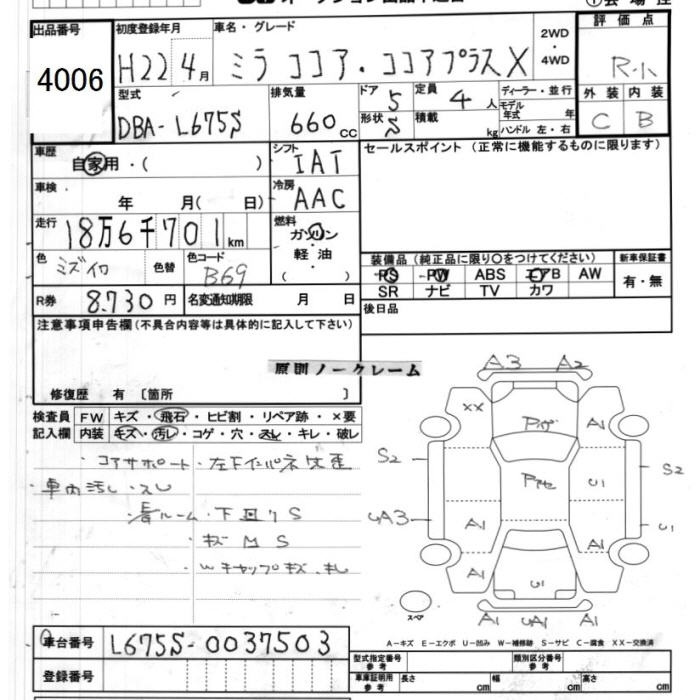 出品番号 初度登録年月 車名・グレード 2WD・4WD 評価点
4006 H22 4月 ミラ ココア・ココアプラスX R-小
型式 排気量 ドア 5 定員 4人 ディーラー・並行 外装 内装
DBA-L675S 660cc 形状 S 積載 kg モデル年式 年 ハンドル 左・右 C B
車歴 自家用・( ) シフト IAT セールスポイント(正常に機能するものに限ります)
車検 年 月( 日) 冷房 AAC
走行 18万6千701km 燃料 ガソリン・軽油・( )
色 ミズイロ 色替 色コード B69 装備品(純正品に限り〇をつけてください) 新車保証書
PS PW ABS エアB AW 有・無
SR ナビ TV カワ
R券 8,730円 名変通知期限 月 日 後日品
注意事項申告欄(不具合内容等は具体的に記入して下さい)
原則ノークレーム
修復歴 有〔箇所 〕
検査員記入欄 FW キズ・飛石・ヒビ割・リペア跡・×要
内装 キズ・汚し・コゲ・穴・スレ・キレ・破レ
・コアサポート・左下インパネ
・車内汚し・スレ
・下回りS
・キズ M S
A3 A2
XX A1
S2 S2
U1
A1 A1
A1 A1
U1
A1 UA1 A1
スペア
A-キズ E-エクボ U-凹み W-補修跡 S-サビ C-腐食 XX-交換済
車台番号 L675S-0037503
登録番号
型式指定番号 参考 類別区分番号 参考
車庫証明用 参考 長さ cm 幅 cm 高さ cm